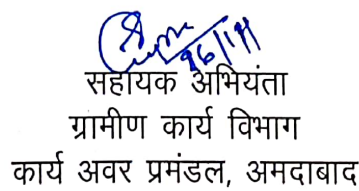 सहायक अभियंता
ग्रामीण कार्य विभाग
कार्य अवर प्रमंडल, अमदाबाद